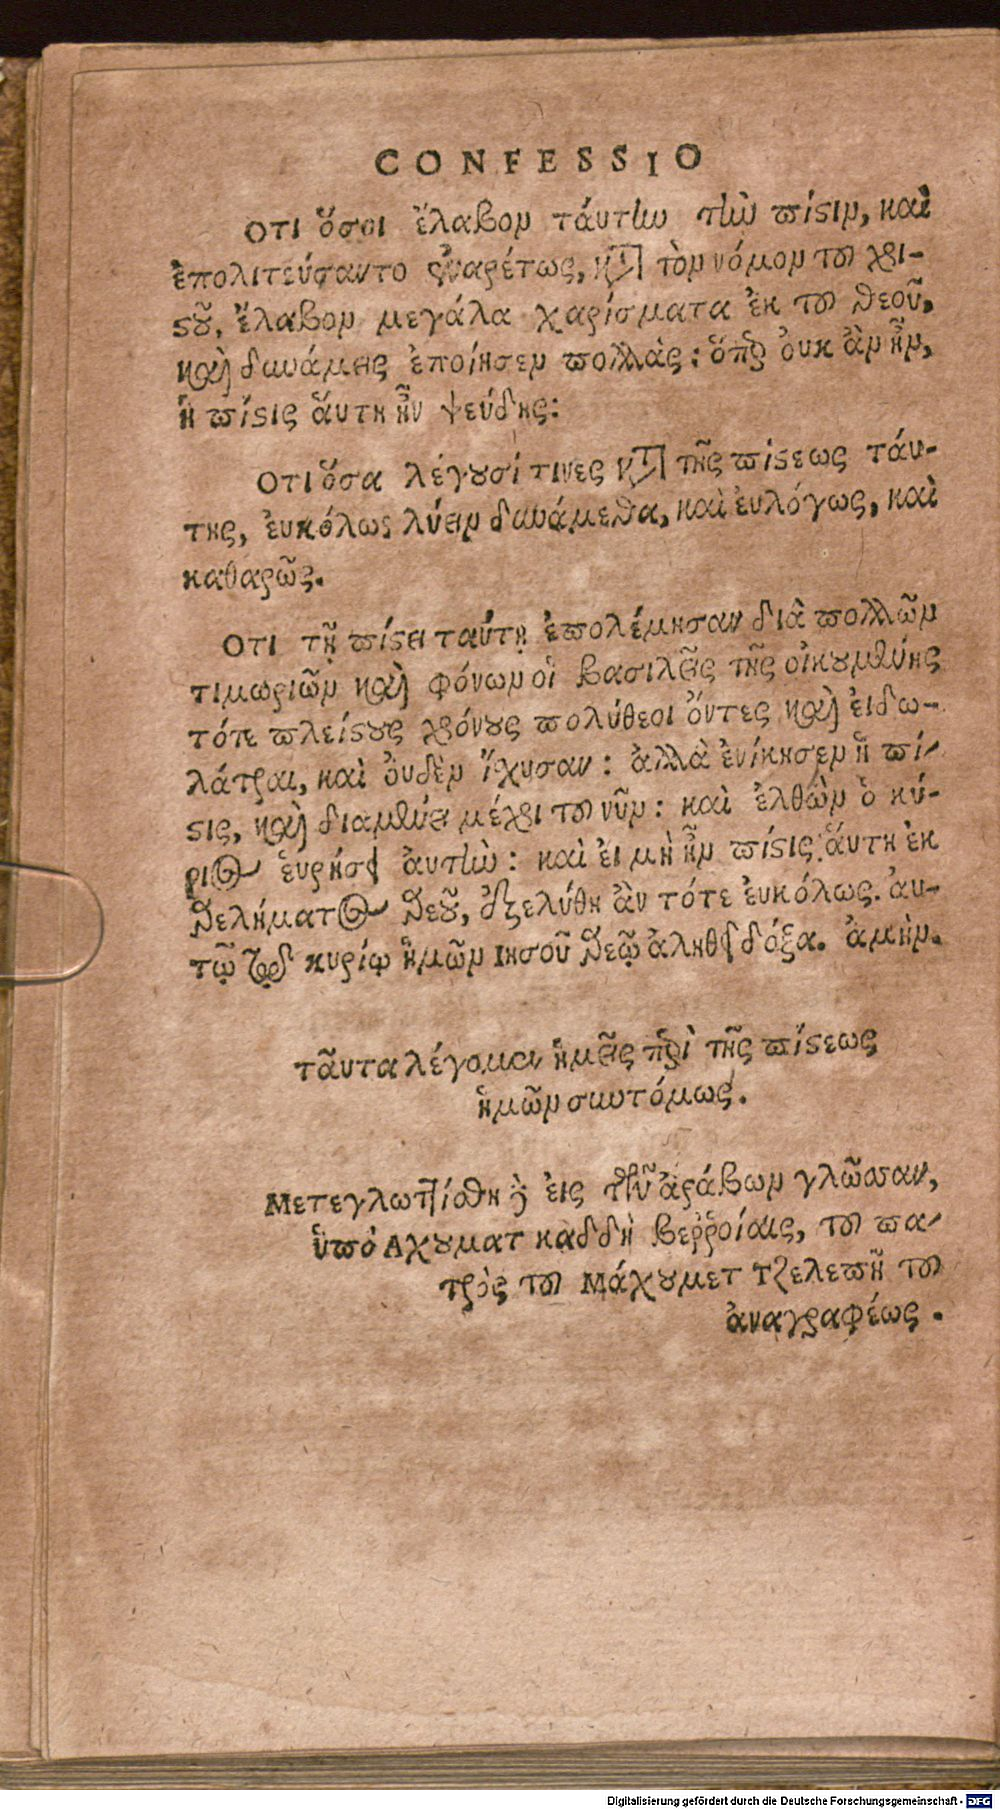 CONFESSIO
Οτι ὅσοι ἔλαβον τάυτην τὴν πίστιν, καὶ
ἐπολιτεύσαντο ἐναρέτως, κατὰ τὸν νόμον τοῦ χρι-
στοῦ, ἔλαβον μεγάλα χαρίσματα ἐκ τοῦ θεοῦ,
καὶ δυνάμεις ἐποίησεν πολλὰς: ὅπερ ὀυκ ἂν ἦν,
ἡ πίστις ἅυτη ἦν ψεύδης:
Οτι ὅσα λέγουσί τινες κατὰ τῆς πίστεως τάυ-
της, ἐυκόλως λύειν δυνάμεθα, καὶ ἐυλόγως, καὶ
καθαρῶς.
Οτι τῇ πίστει ταύτῃ ἐπολέμησαν διὰ πολλῶν
τιμωριῶν καὶ φόνων οἱ βασιλεῖς τῆς οἰκουμένης
τότε πλείστους χρόνους πολύθεοι ὄντες καὶ ἐιδω-
λάτραι, καὶ ὀυδὲν ἴχυσαν: ἀλλὰ ἐνίκησεν ἡ πί-
στις, καὶ διαμένει μέχρι τοῦ νῦν: καὶ ἐλθὼν ὁ κύ-
ριος ἑυρήσει ἀυτὴν: καὶ ἐι μὴ ἦν πίστις ἅυτη ἐκ
θελήματος θεοῦ, ἐξελύθη ἂν τότε ἐυκόλως. ἀυ-
τῷ τῷ δὲ κυρίῳ ἡμῶν Ιησοῦ θεῷ ἀληθεῖ δόξα. ἀμὴν.
ταῦτα λέγομεν ἡμεῖς περὶ τῆς πίστεως
ἡμῶν συντόμως.
Μετεγλωττίσθη δὲ ἐις τὴν ἀράβων γλῶσσαν,
ὑπὸ Αχουματ καδδὴ βερῥοίας, τοῦ πα-
τρὸς τοῦ Μάχουμετ Τζελεπῆ τοῦ
ἀναγραφέως.
Digitalisierung gefördert durch die Deutsche Forschungsgemeinschaft - DFG